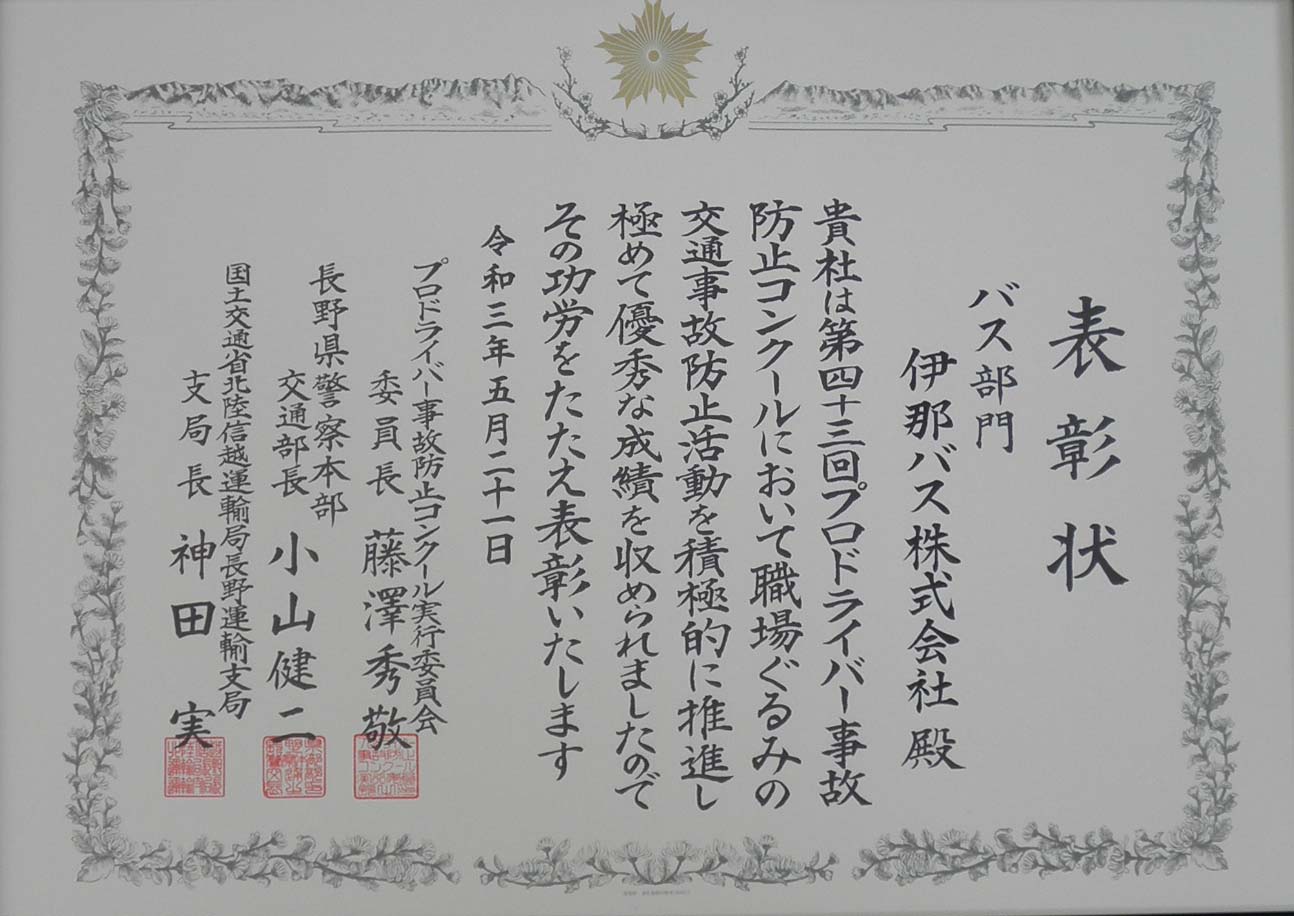 表彰状
バス部門
伊那バス株式会社殿
貴社は第四十三回プロドライバー事故
防止コンクールにおいて職場ぐるみの
交通事故防止活動を積極的に推進し
極めて優秀な成績を収められましたので
その功労をたたえ表彰いたします
令和三年五月二十一日
プロドライバー事故防止コンクール実行委員会
委員長 藤澤秀敬
長野県警察本部
交通部長 小山健二
国土交通省北陸信越運輸局長野運輸支局
支局長 神田実